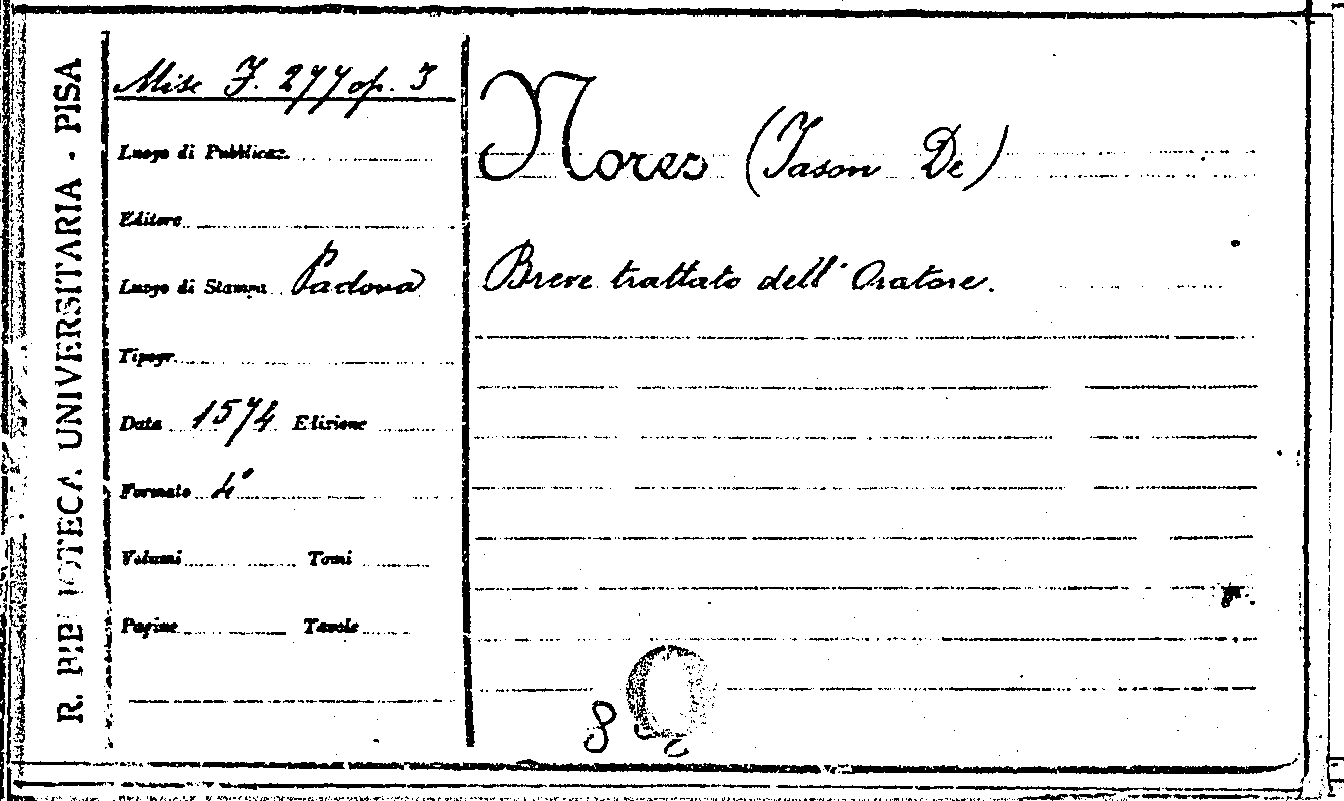 R. BIBLIOTECA UNIVERSITARIA - PISA
Misc F. 277 op. 3
Luogo di Pubblicaz.
Editore
Luogo di Stampa Padova
Tipogr.
Data 1574 Edizione
Formato 4°
Volumi Tomi
Pagine Tavole
Nores (Jason De)
Breve trattato dell' Oratore.
8